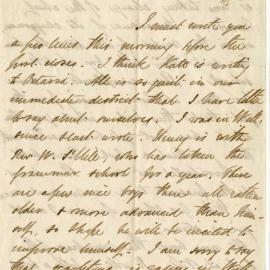 I must write you
a few lines this morning before the
post closes. I think Kate is writing
to Octavia. All is so quiet in our
immediate district that I have little
to say about ourselves. I was in Wall.
since I last wrote. Henry is with
Rev W. St Hill, who has taken the
grammar school for a year. There
are a few nice boys there all rather
older & more advanced than Hen-
ry, so I hope he will be incited to
improve himself. I am sorry to say
that